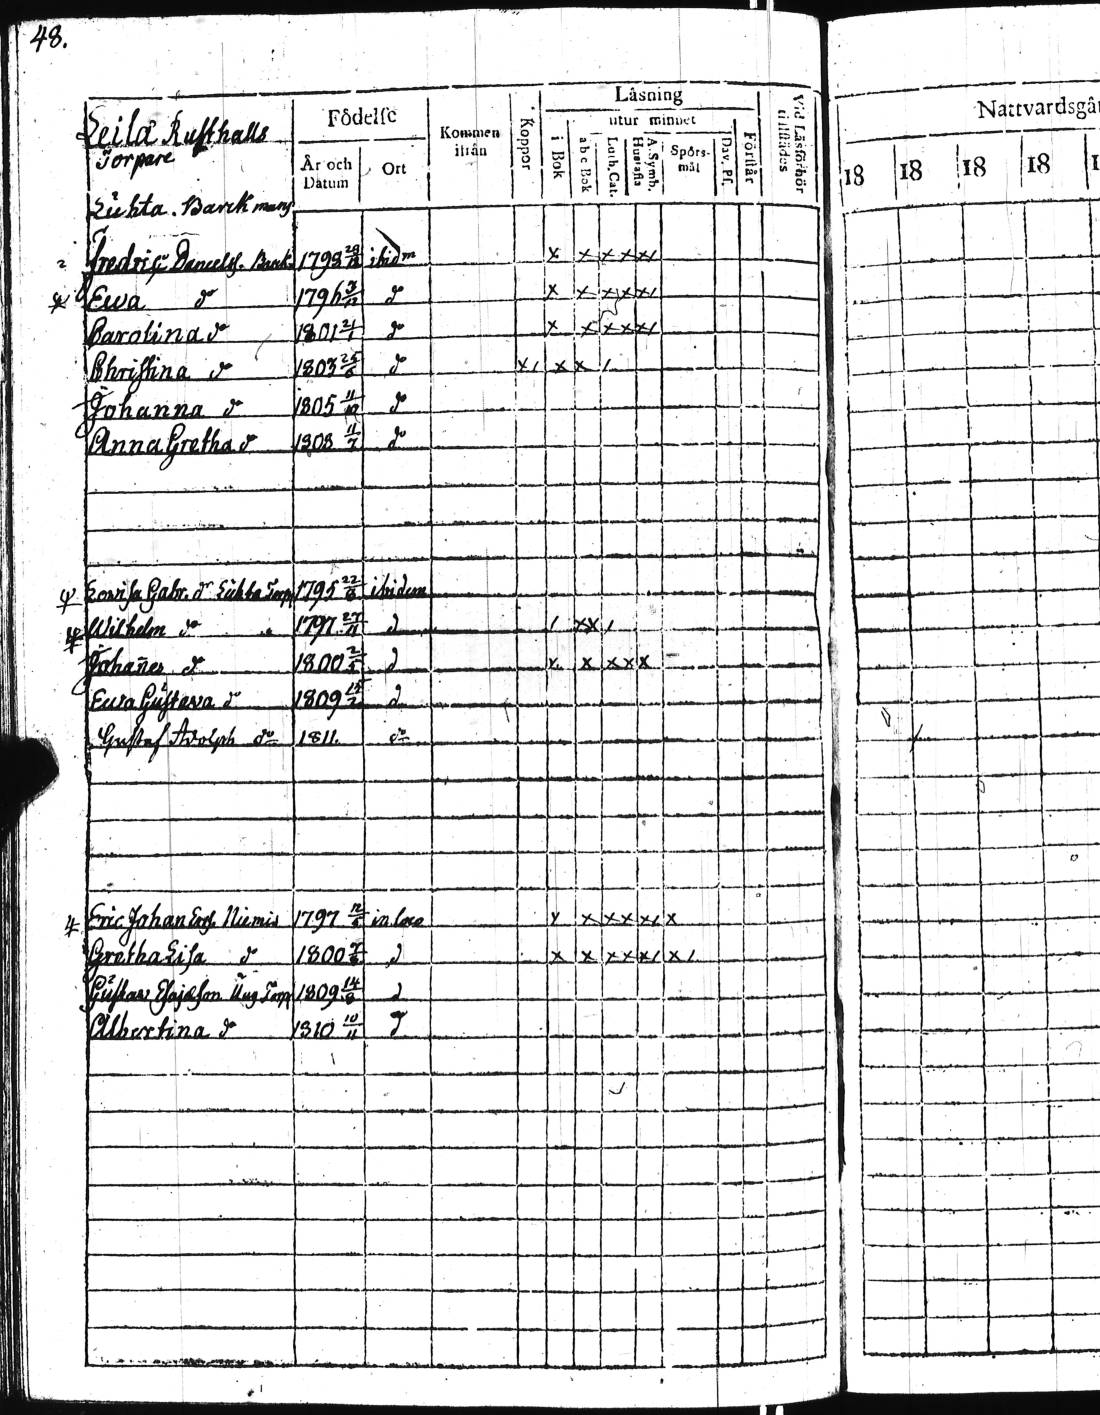 48.
Leila Rusthålls
Torpare
Lühta. Barkmans
Födelse
År och Datum
Ort
Kommen ifrån
Koppor
Läsning
utur minnet
i Bok
a b c Bok
Luth. Cat.
A. Symb. Hustafla
Spörsmål
Dav. Ps.
Förstår
Vid Läsförhör tillstädes
Nattvardsgå
18 18 18 18 1
Fredric Danielss. Bark. 1798 28/12 ibidm x x x x x/
Ewa do 1796 3/12 do x x x x x/
Carolina do 1801 21/1 do x x x x x/
Christina do 1803 25/6 do x/ x x /
Johanna do 1805 11/10 do
Anna Gretha do 1808 11/7 do
Lowisa Gabr. dr Lühta Torp 1795 22/8 ibidem
Wilhelm do 1797 27/11 d / x x /
Johannes do 1800 2/5 d x x x x x
Ewa Gustava d 1809 15/2 d
Gustaf Adolph do 1811. do
Eric Johan Ers. Niemis 1797 12/5 in loco x x x x x/ x
Gretha Lisa d 1800 7/8 d x x x x x/ x/
Gustav Esajason Torp 1809 14/8 d
Albertina do 1810 10/11 d